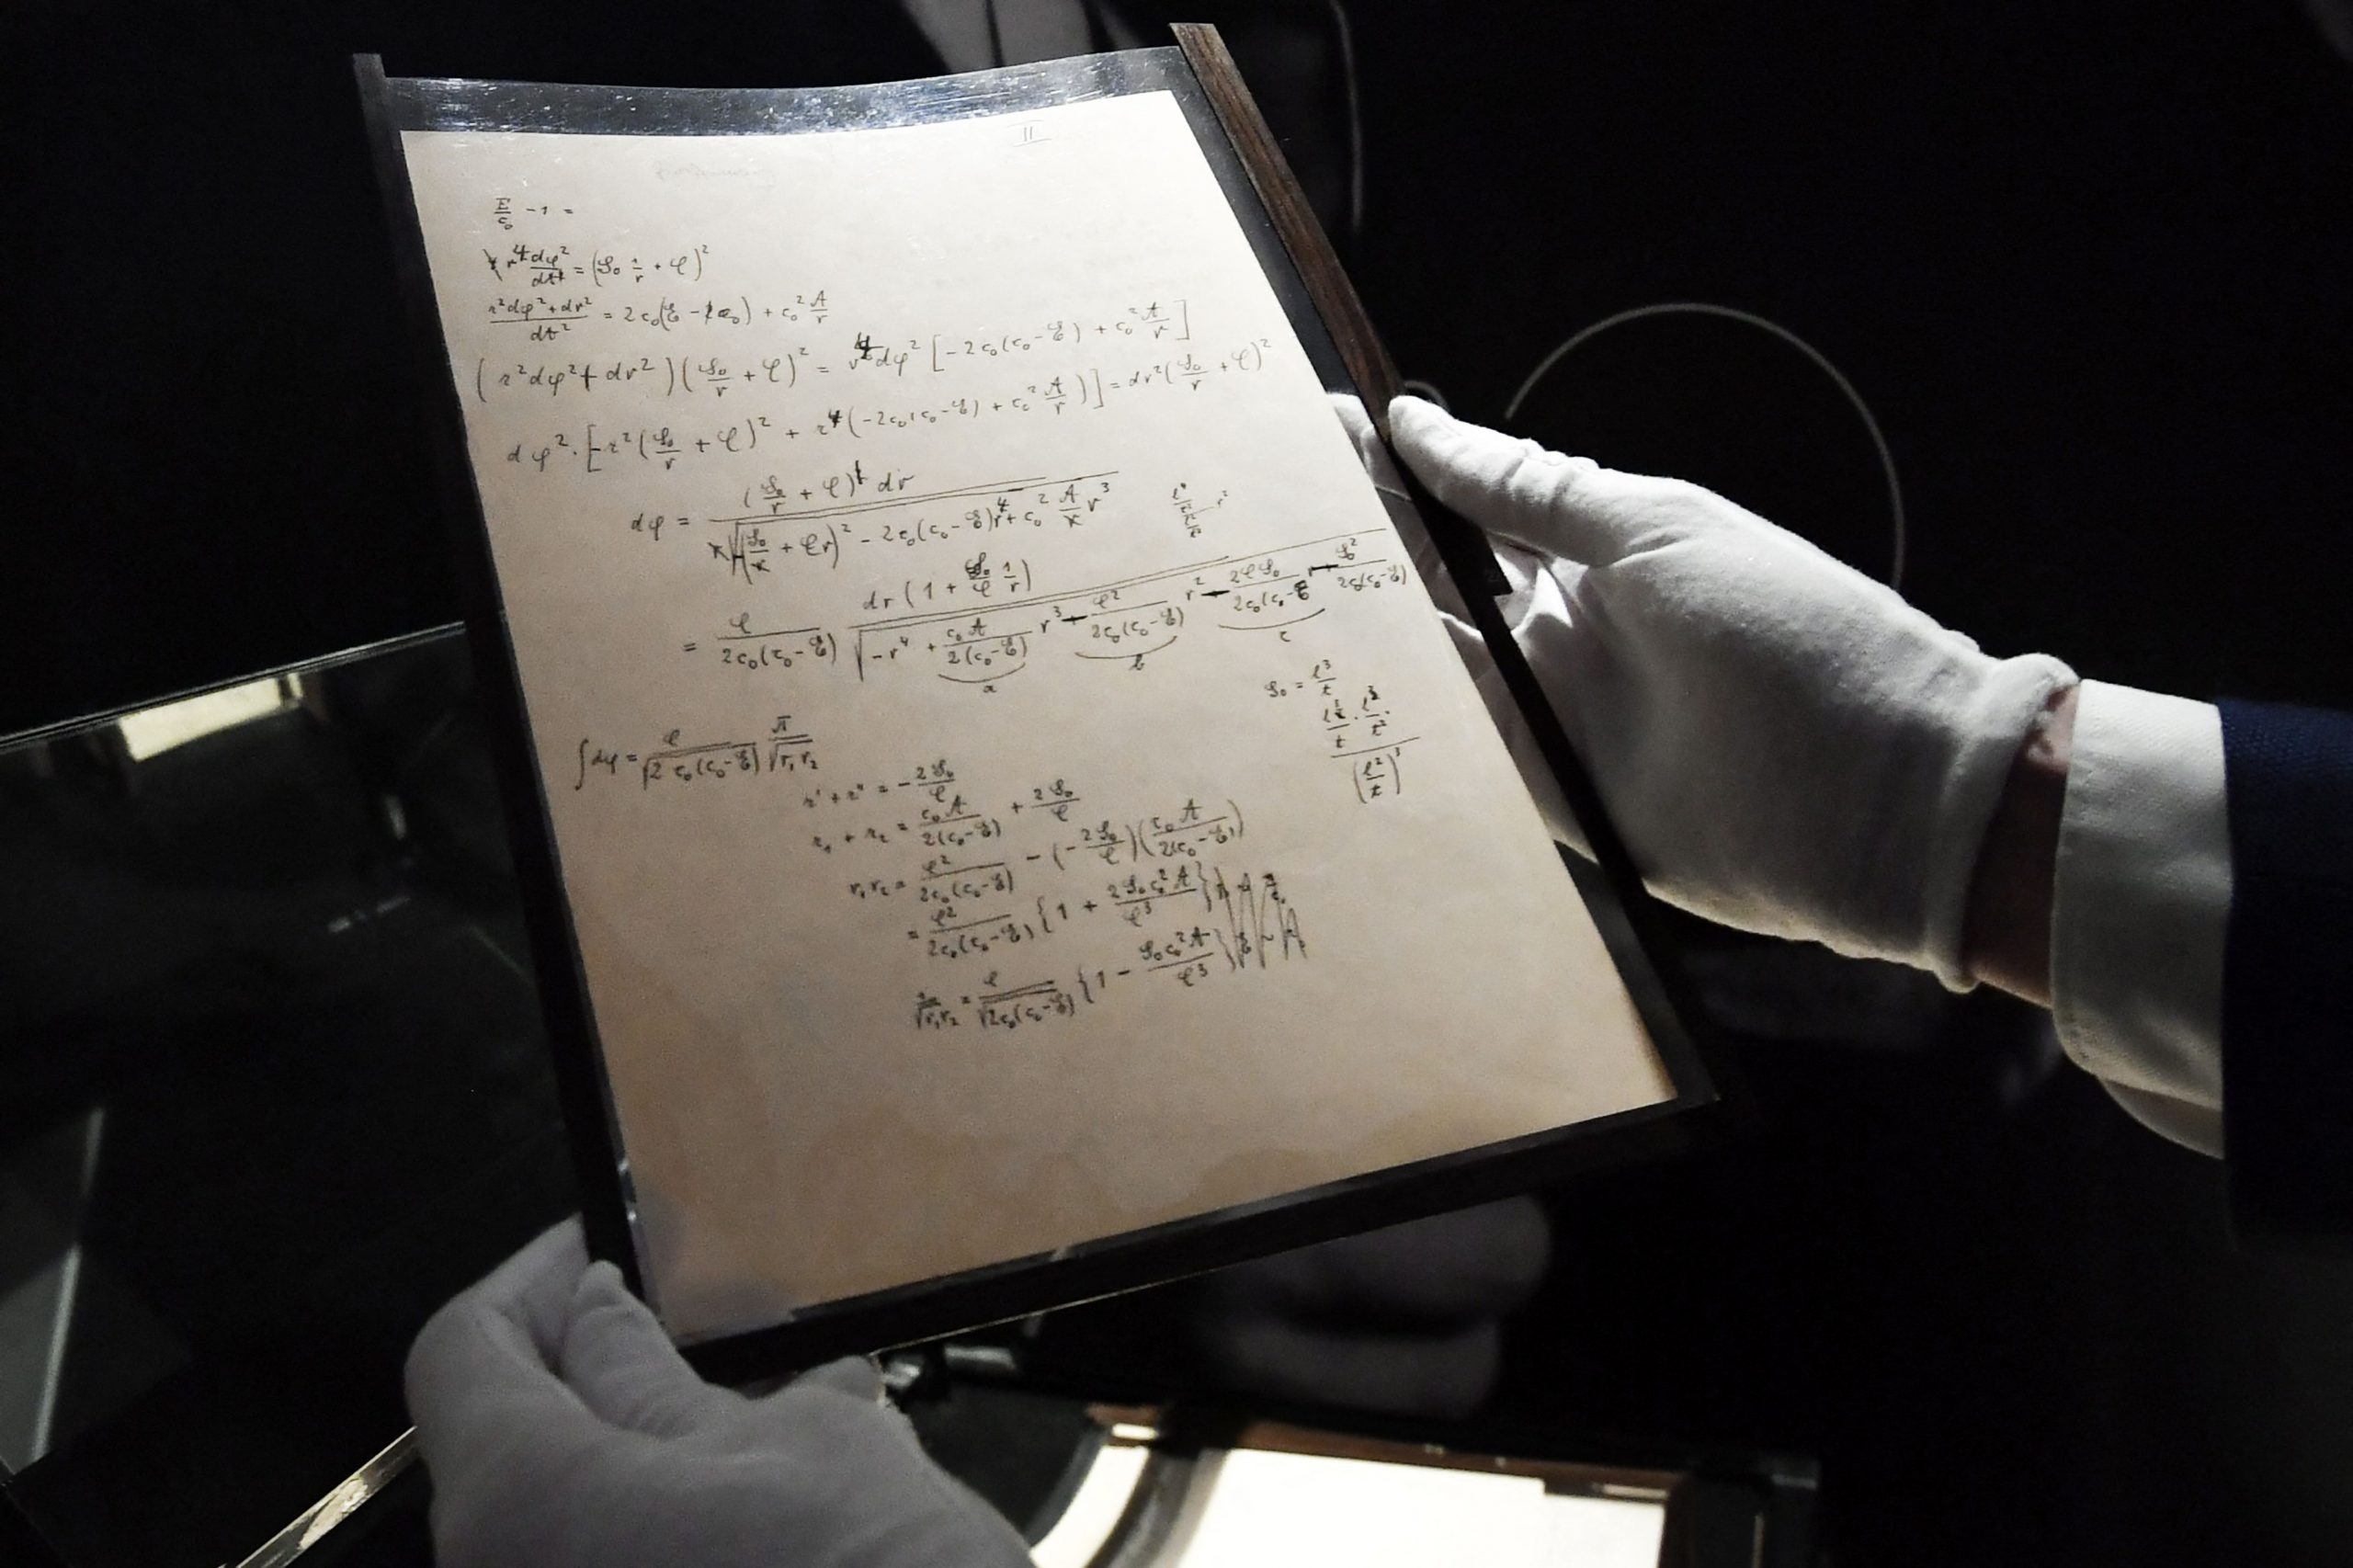 II
E/c₀ - 1 =
r⁴ dφ²/dt² = (S₀ 1/r + C)²
(r²dφ² + dr²)/dt² = 2c₀(E - c₀) + c₀² A/r
(r²dφ² + dr²)(S₀/r + C)² = r⁴dφ² [-2c₀(c₀-E) + c₀² A/r]
dφ² · [-r²(S₀/r + C)² + r⁴(-2c₀(c₀-E) + c₀² A/r)] = dr²(S₀/r + C)²
dφ = (S₀/r + C) dr / √((S₀ + Cr)² - 2c₀(c₀-E)r⁴ + c₀² A r³)
= C/(2c₀(c₀-E)) dr(1 + S₀/C 1/r) / √(-r⁴ + c₀A/(2(c₀-E)) r³ - C²/(2c₀(c₀-E)) r² - 2CS₀/(2c₀(c₀-E)) r - S₀²/(2c₀(c₀-E)))
a b c
S₀ = l³/t
∫dφ = C/√(2c₀(c₀-E)) π/√(r₁r₂)
r' + r'' = -2S₀/C
r₁ + r₂ = c₀A/(2(c₀-E)) + 2S₀/C
r₁r₂ = C²/(2c₀(c₀-E)) - (-2S₀/C)(c₀A/(2(c₀-E)))
= C²/(2c₀(c₀-E)) {1 + 2S₀c₀²A/C³}
1/√(r₁r₂) = C/√(2c₀(c₀-E)) {1 - S₀c₀²A/C³}